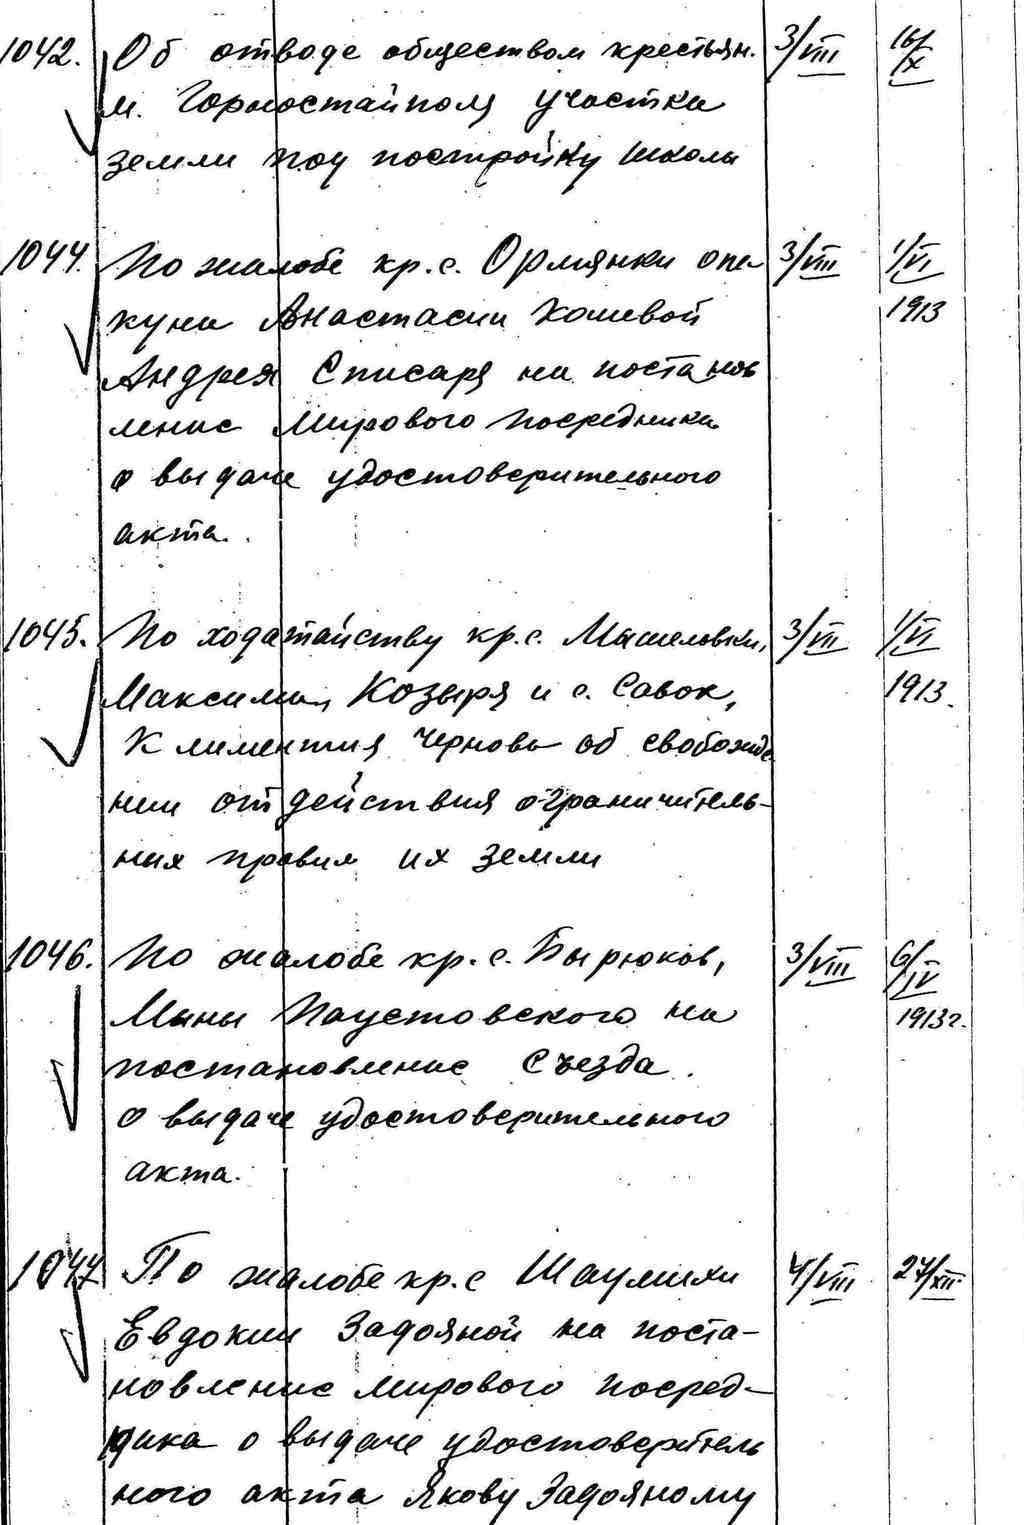 1042. Об отводе обществом крестьян. 3/VIII 16/X
м. Горностайполя участка
земли под постройку школы
1044. По жалобе кр. с. Ормянки опе- 3/VIII 1/VI
куна Анастасии Кошевой 1913
Андрея Списаря на постанов
ление Мирового Посредника
о выдаче удостоверительного
акта.
1045. По ходатайству кр. с. Машеловки, 3/VIII 1/VI
Максима Козыря и с. Савок, 1913.
Климентия Чернова об свобожде
нии от действия ограничитель-
ных правил их земли
1046. По жалобе кр. с. Бырюков, 3/VIII 6/IV
Мины Паустовского на 1913г.
постановление Съезда
о выдаче удостоверительного
акта.
1047 По жалобе кр. с Шаулихи 4/VIII 27/XII
Евдокии Задояной на поста-
новление мирового посред-
ника о выдаче удостоверитель
ного акта Якову Задояному